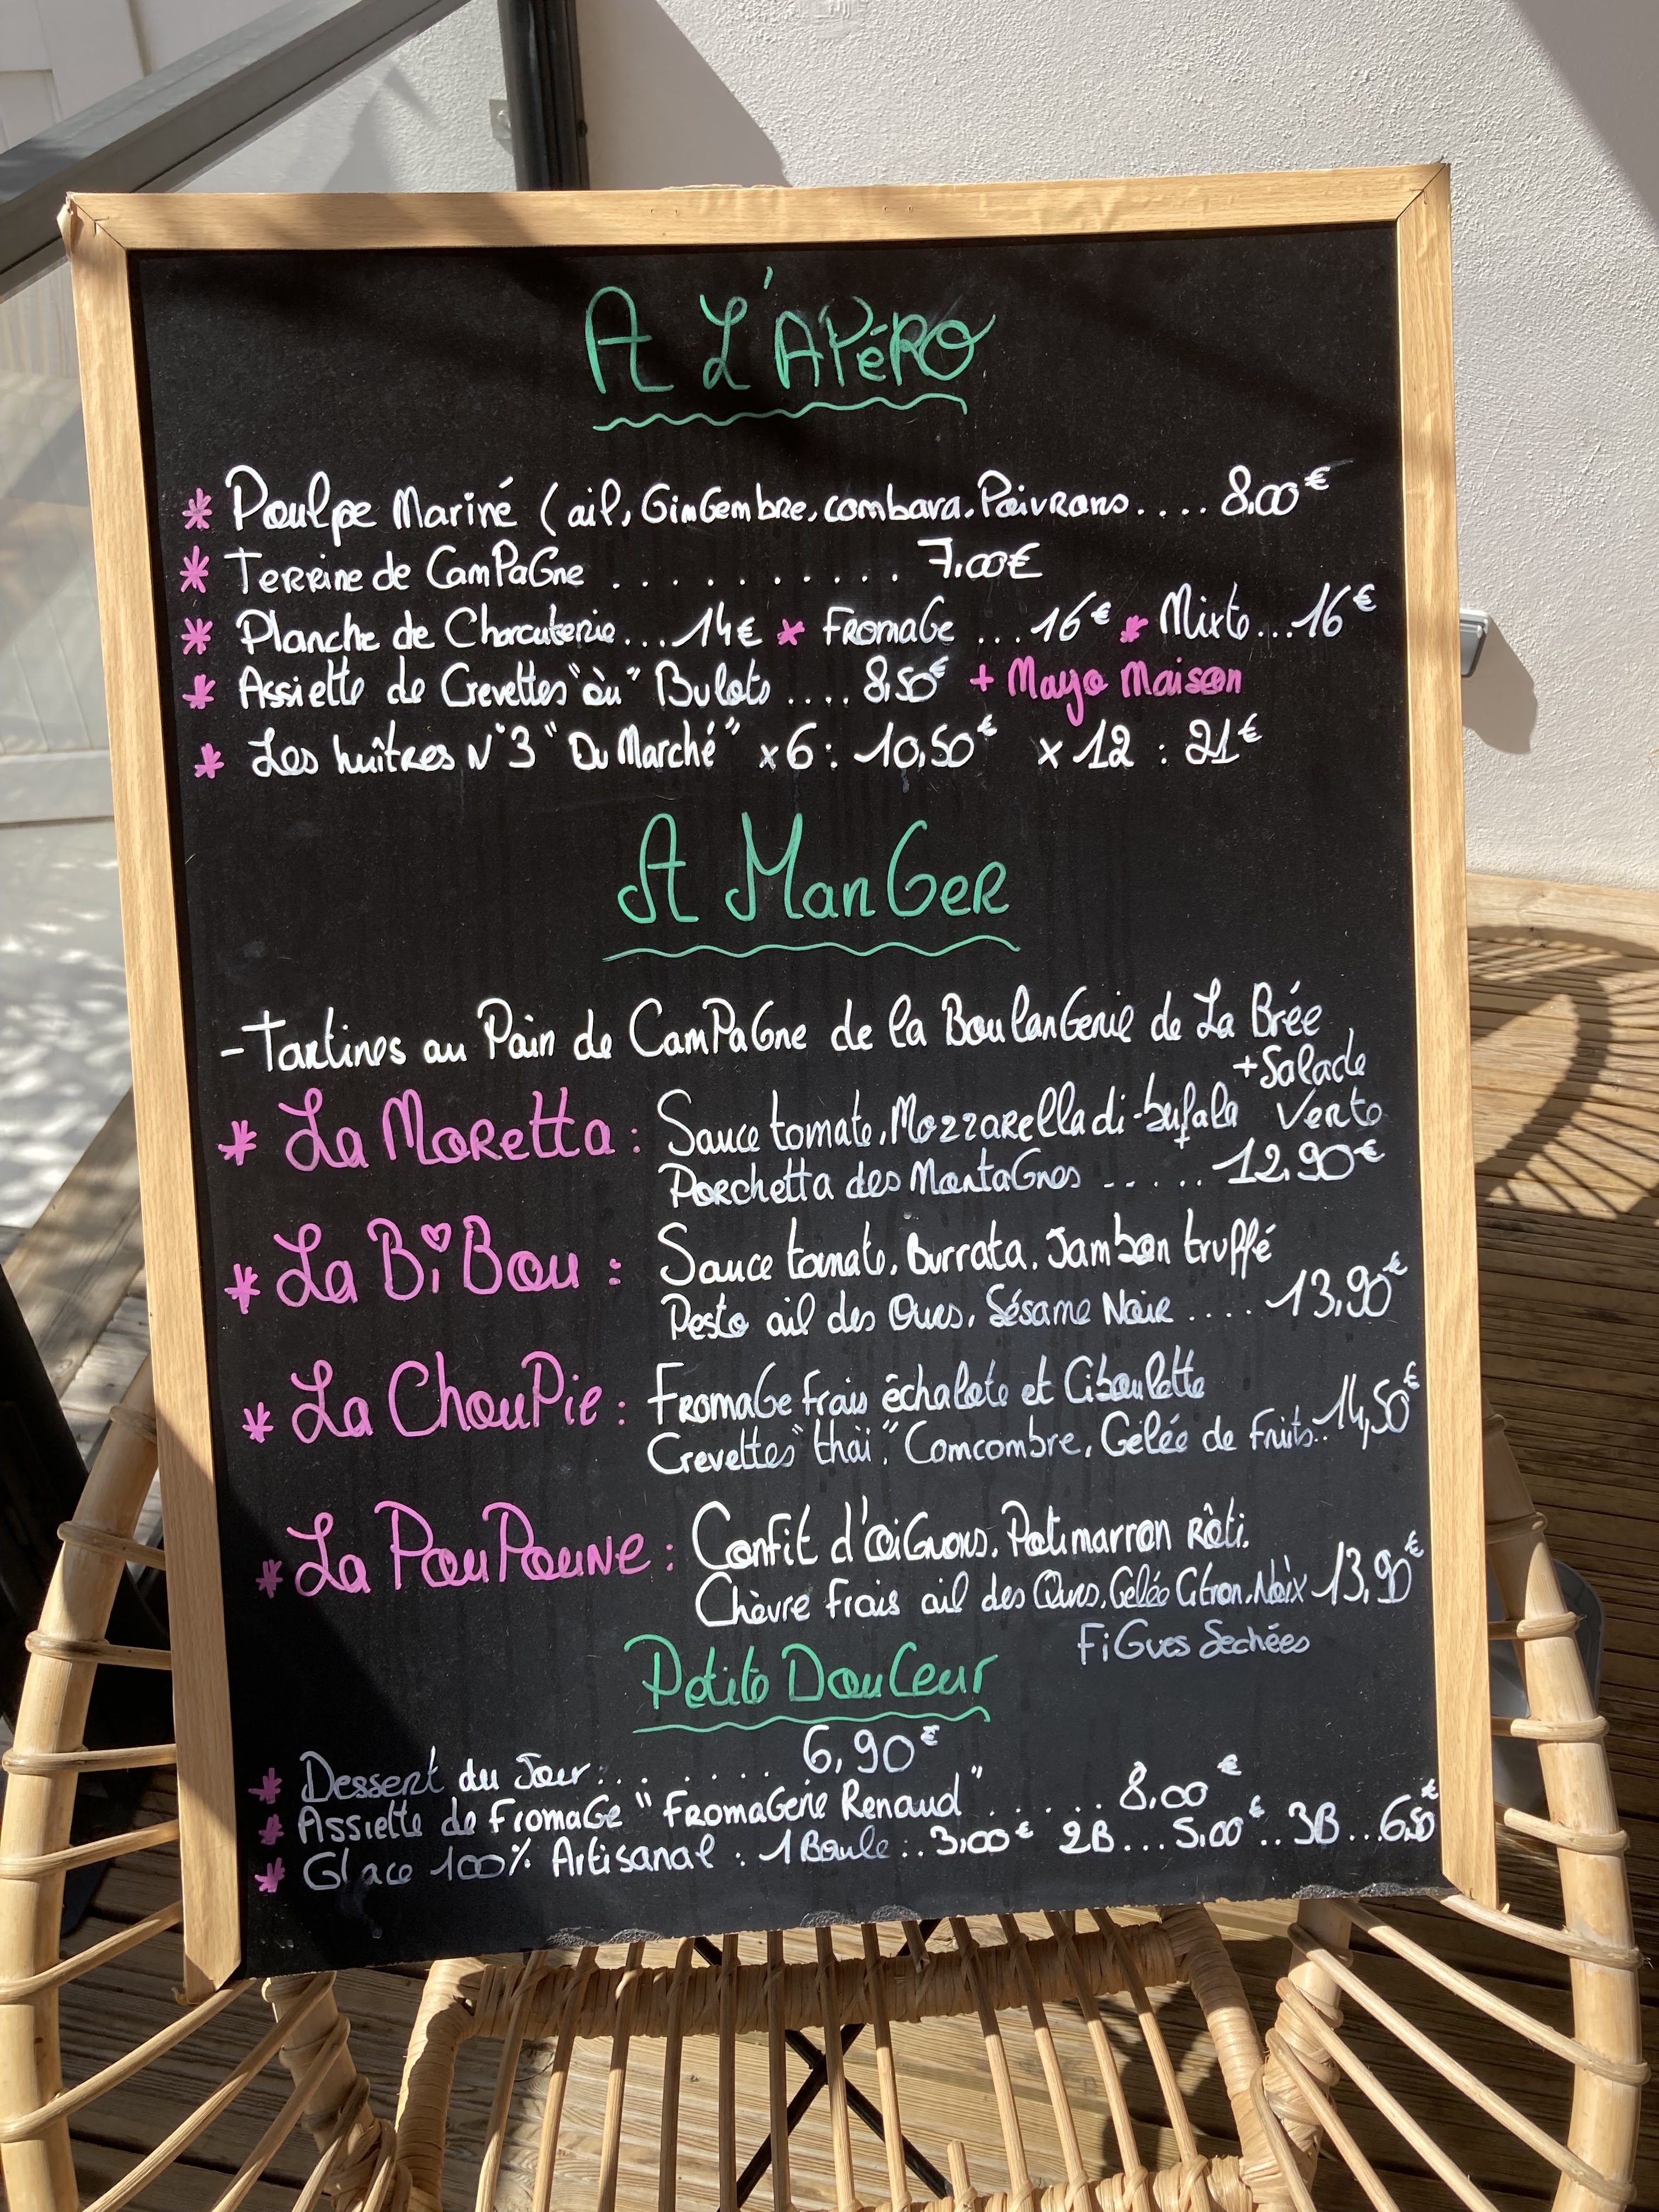 A L'APéRO
* Poulpe Mariné (ail, GinGembre, combava, Poivrons.... 8,00€
* Terrine de CamPaGne .......... 7,00€
* Planche de Charcuterie... 14€ * FRomaGe ... 16€ * Mixte... 16€
* Assiette de Crevettes "ou" Bulots .... 8,50€ + Mayo Maison
* Les huîtres N°3 "Du Marché" x6 : 10,50€ x12 : 21€
A ManGeR
- Tartines au Pain de CamPaGne de la BoulanGerie de La Brée
+ Salade Verte
* La MoRetta : Sauce tomate, Mozzarella di bufala
Porchetta des MontaGnes ..... 12,90€
* La BiBou : Sauce tomate, Burrata, Jambon truffé
Pesto ail des Ours, Sésame Noir .... 13,90€
* La ChouPie : FRomaGe frais échalote et Ciboulette
Crevettes "thaï", Comcombre, Gelée de fruits.. 14,50€
* La PouPoune : Confit d'oiGnons, Potimarron Rôti,
Chèvre frais ail des Ours, Gelée Citron, Noix 13,90€
FiGues Sechées
Petite DouCeur
* Dessert du Jour......... 6,90€
* Assiette de FromaGe "FRomaGerie Renaud" ...... 8,00€
* Glace 100% Artisanal : 1 Boule : .. 3,00€ 2B... 5,00€ .. 3B ... 6,50€